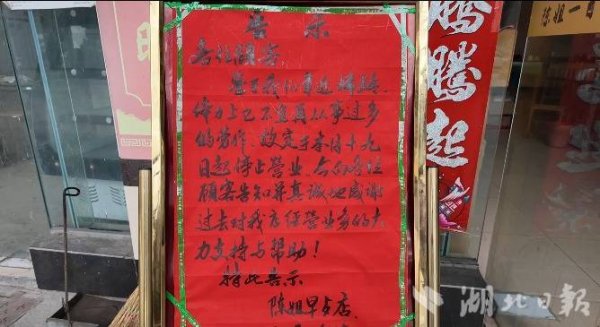 告示
各位顾客:
基于我们年近
体力上已不宜再从事过多
的劳作,故定于本月十九
日起停止营业,今向各位
顾客告知并真诚地感谢
过去对我店经营业务的大
力支持与帮助!
特此告示
陈姐早点店
腾腾起
陈姐一
湖北日报